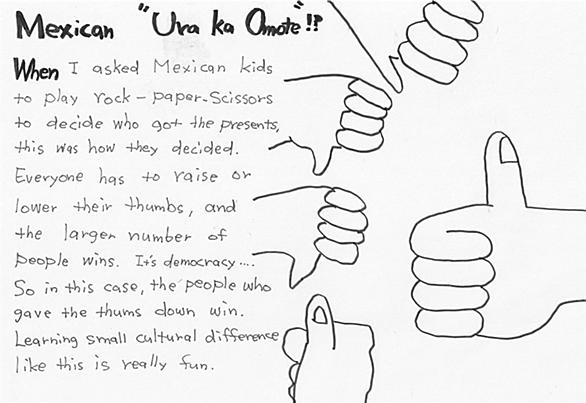 Mexican "Ura ka Omote"!?
When I asked Mexican kids
to play rock-paper-Scissors
to decide who got the presents,
this was how they decided.
Everyone has to raise or
lower their thumbs, and
the larger number of
people wins. It's democracy....
So in this case, the people who
gave the thums down win.
Learning small cultural difference
like this is really fun.